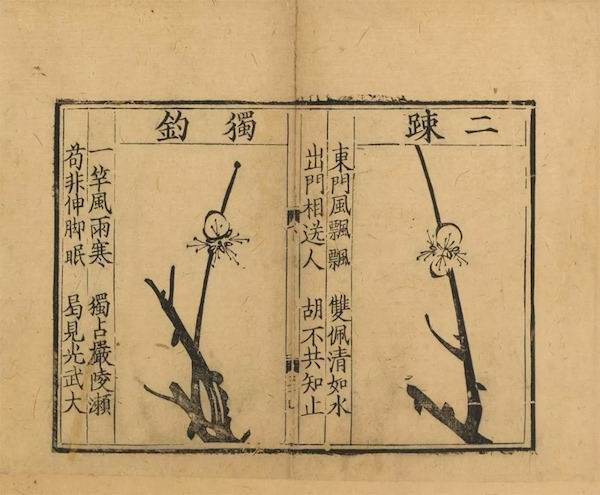 二踈
東門風飄飄 雙佩清如水
出門相送人 胡不共知止
獨釣
一竿風雨寒 獨占嚴陵瀨
苟非伸脚眠 曷見光武大